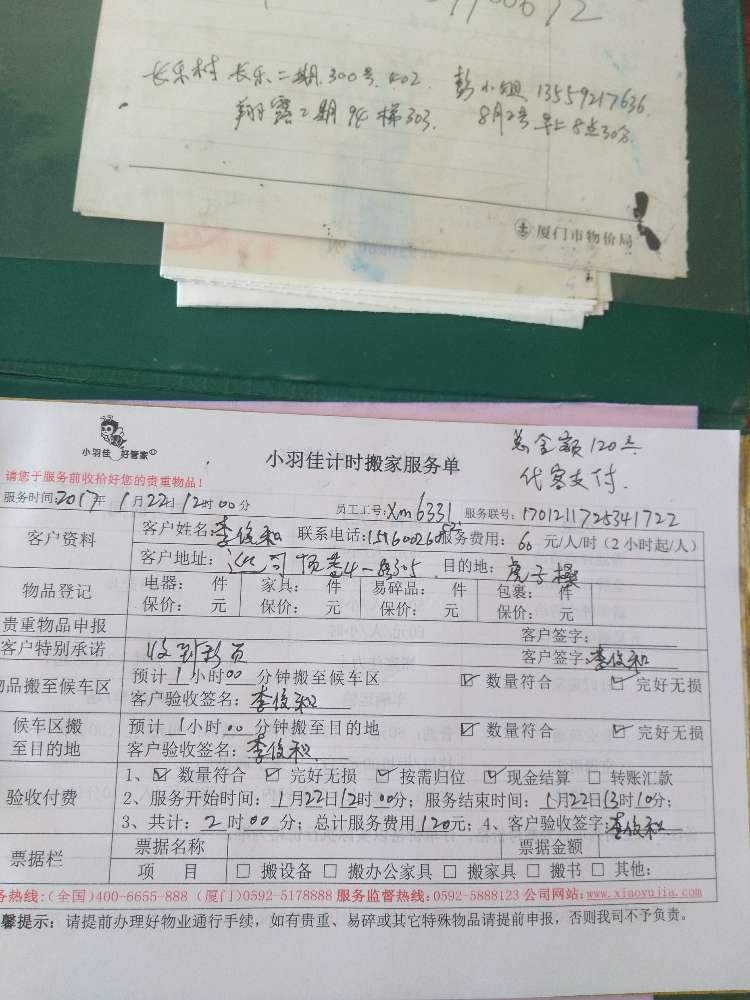 长乐村 长乐二期.300号.402. 彭小姐 13559217636.
翔鹭二期94梯303. 8月2号早上8点30分.
厦门市物价局
总金额120元
代客支付.
小羽佳 好管家
小羽佳计时搬家服务单
请您于服务前收拾好您的贵重物品！
服务时间:2017年 1月22日12时00分 员工工号:Xm6331 服务联号:1701211725341722
客户资料
客户姓名:李俊和 联系电话: 服务费用: 60 元/人/时（2 小时起/人）
客户地址: 目的地:
物品登记
电器： 件 家具： 件 易碎品： 件 包裹： 件
保价： 元 保价： 元 保价： 元 保价： 元
贵重物品申报 客户签字:
客户特别承诺 客户签字:李俊和
物品搬至候车区
预计1小时00 分钟搬至候车区 ☑ 数量符合 ☑ 完好无损
客户验收签名：李俊和
候车区搬
至目的地
预计1小时00 分钟搬至目的地 ☑ 数量符合 ☑ 完好无损
客户验收签名：李俊和
验收付费
1、☑ 数量符合 ☑ 完好无损 ☑ 按需归位 ☑ 现金结算 □ 转账汇款
2、服务开始时间：1月22日12时00分；服务结束时间：1月22日13时10分；
3、共计：2时00 分；总计服务费用120元；4、客户验收签字:李俊和
票据栏
票据名称 票据金额
项 目 □ 搬设备 □ 搬办公家具 □ 搬家具 □ 搬书 □ 其他:
务热线:(全国)400-6655-888（厦门)0592-5178888 服务监督热线:0592-5888123 公司网站:www.xiaoyujia.com
馨提示：请提前办理好物业通行手续，如有贵重、易碎或其它特殊物品请提前申报，否则我司不予负责。